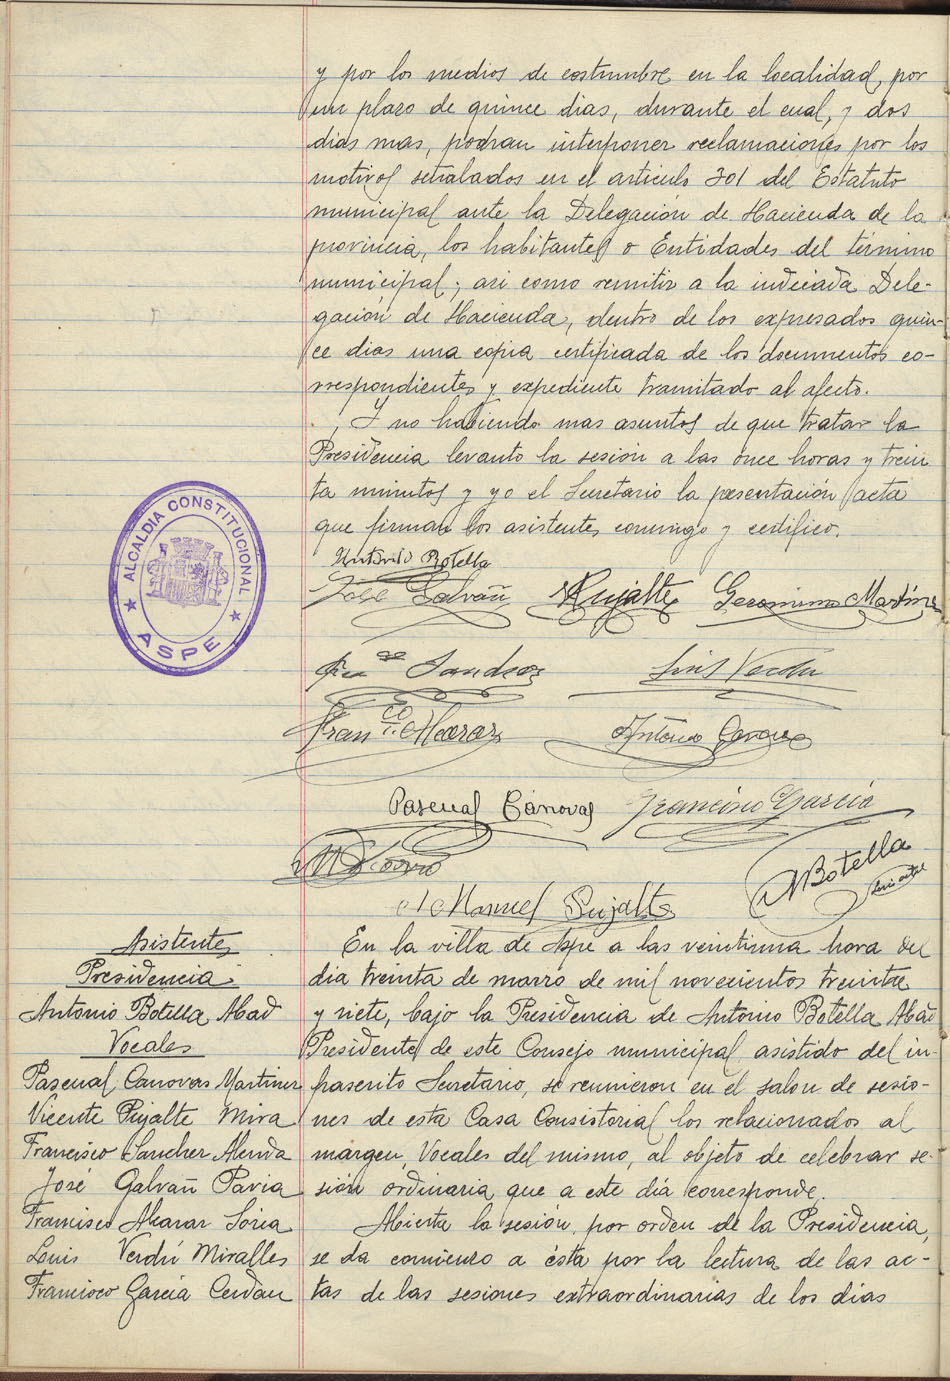 y por los medios de costumbre en la localidad, por
un plazo de quince dias, durante el cual, y dos
dias mas, podran interponer reclamaciones por los
motivos señalados en el articulo 301 del Estatuto
municipal ante la Delegación de Hacienda de la
provincia, los habitantes o Entidades del término
municipal; asi como remitir a la indicada Dele-
gación de Hacienda, dentro de los expresados quin-
ce dias una copia certificada de los documentos co-
rrespondientes y expediente tramitado al efecto.
Y no habiendo mas asuntos de que tratar la
Presidencia levanto la sesión a las once horas y trein
ta minutos y yo el Secretario la presentación acta
que firman los asistentes conmigo y certifico.
ALCALDIA CONSTITUCIONAL
ASPE
Antonio Botella
José Galvañ Pujalte Geronimo Martínez
Sanchez Luis Verdu
Franco Alcaraz Antonio
Pascual Cánovas Francisco García
Manuel Pujalte
Botella
Asistentes
Presidencia
Antonio Botella Abad
Vocales
Pascual Canovas Martinez
Vicente Pujalte Mira
Francisco Sanchez Alenda
José Galvañ Pavia
Francisco Alcaraz Soria
Luis Verdú Miralles
Francisco García Cerdan
En la villa de Aspe a las veintiuna hora del
dia treinta de marzo de mil novecientos treinta
y siete, bajo la Presidencia de Antonio Botella Abad
Presidente de este Consejo municipal asistido del in-
frascrito Secretario, se reunieron en el salon de sesio-
nes de esta Casa Consistorial los relacionados al
margen, Vocales del mismo, al objeto de celebrar se-
sión ordinaria que a este día corresponde.
Abierta la sesión por orden de la Presidencia,
se da comienzo a ésta por la lectura de las ac-
tas de las sesiones extraordinarias de los dias